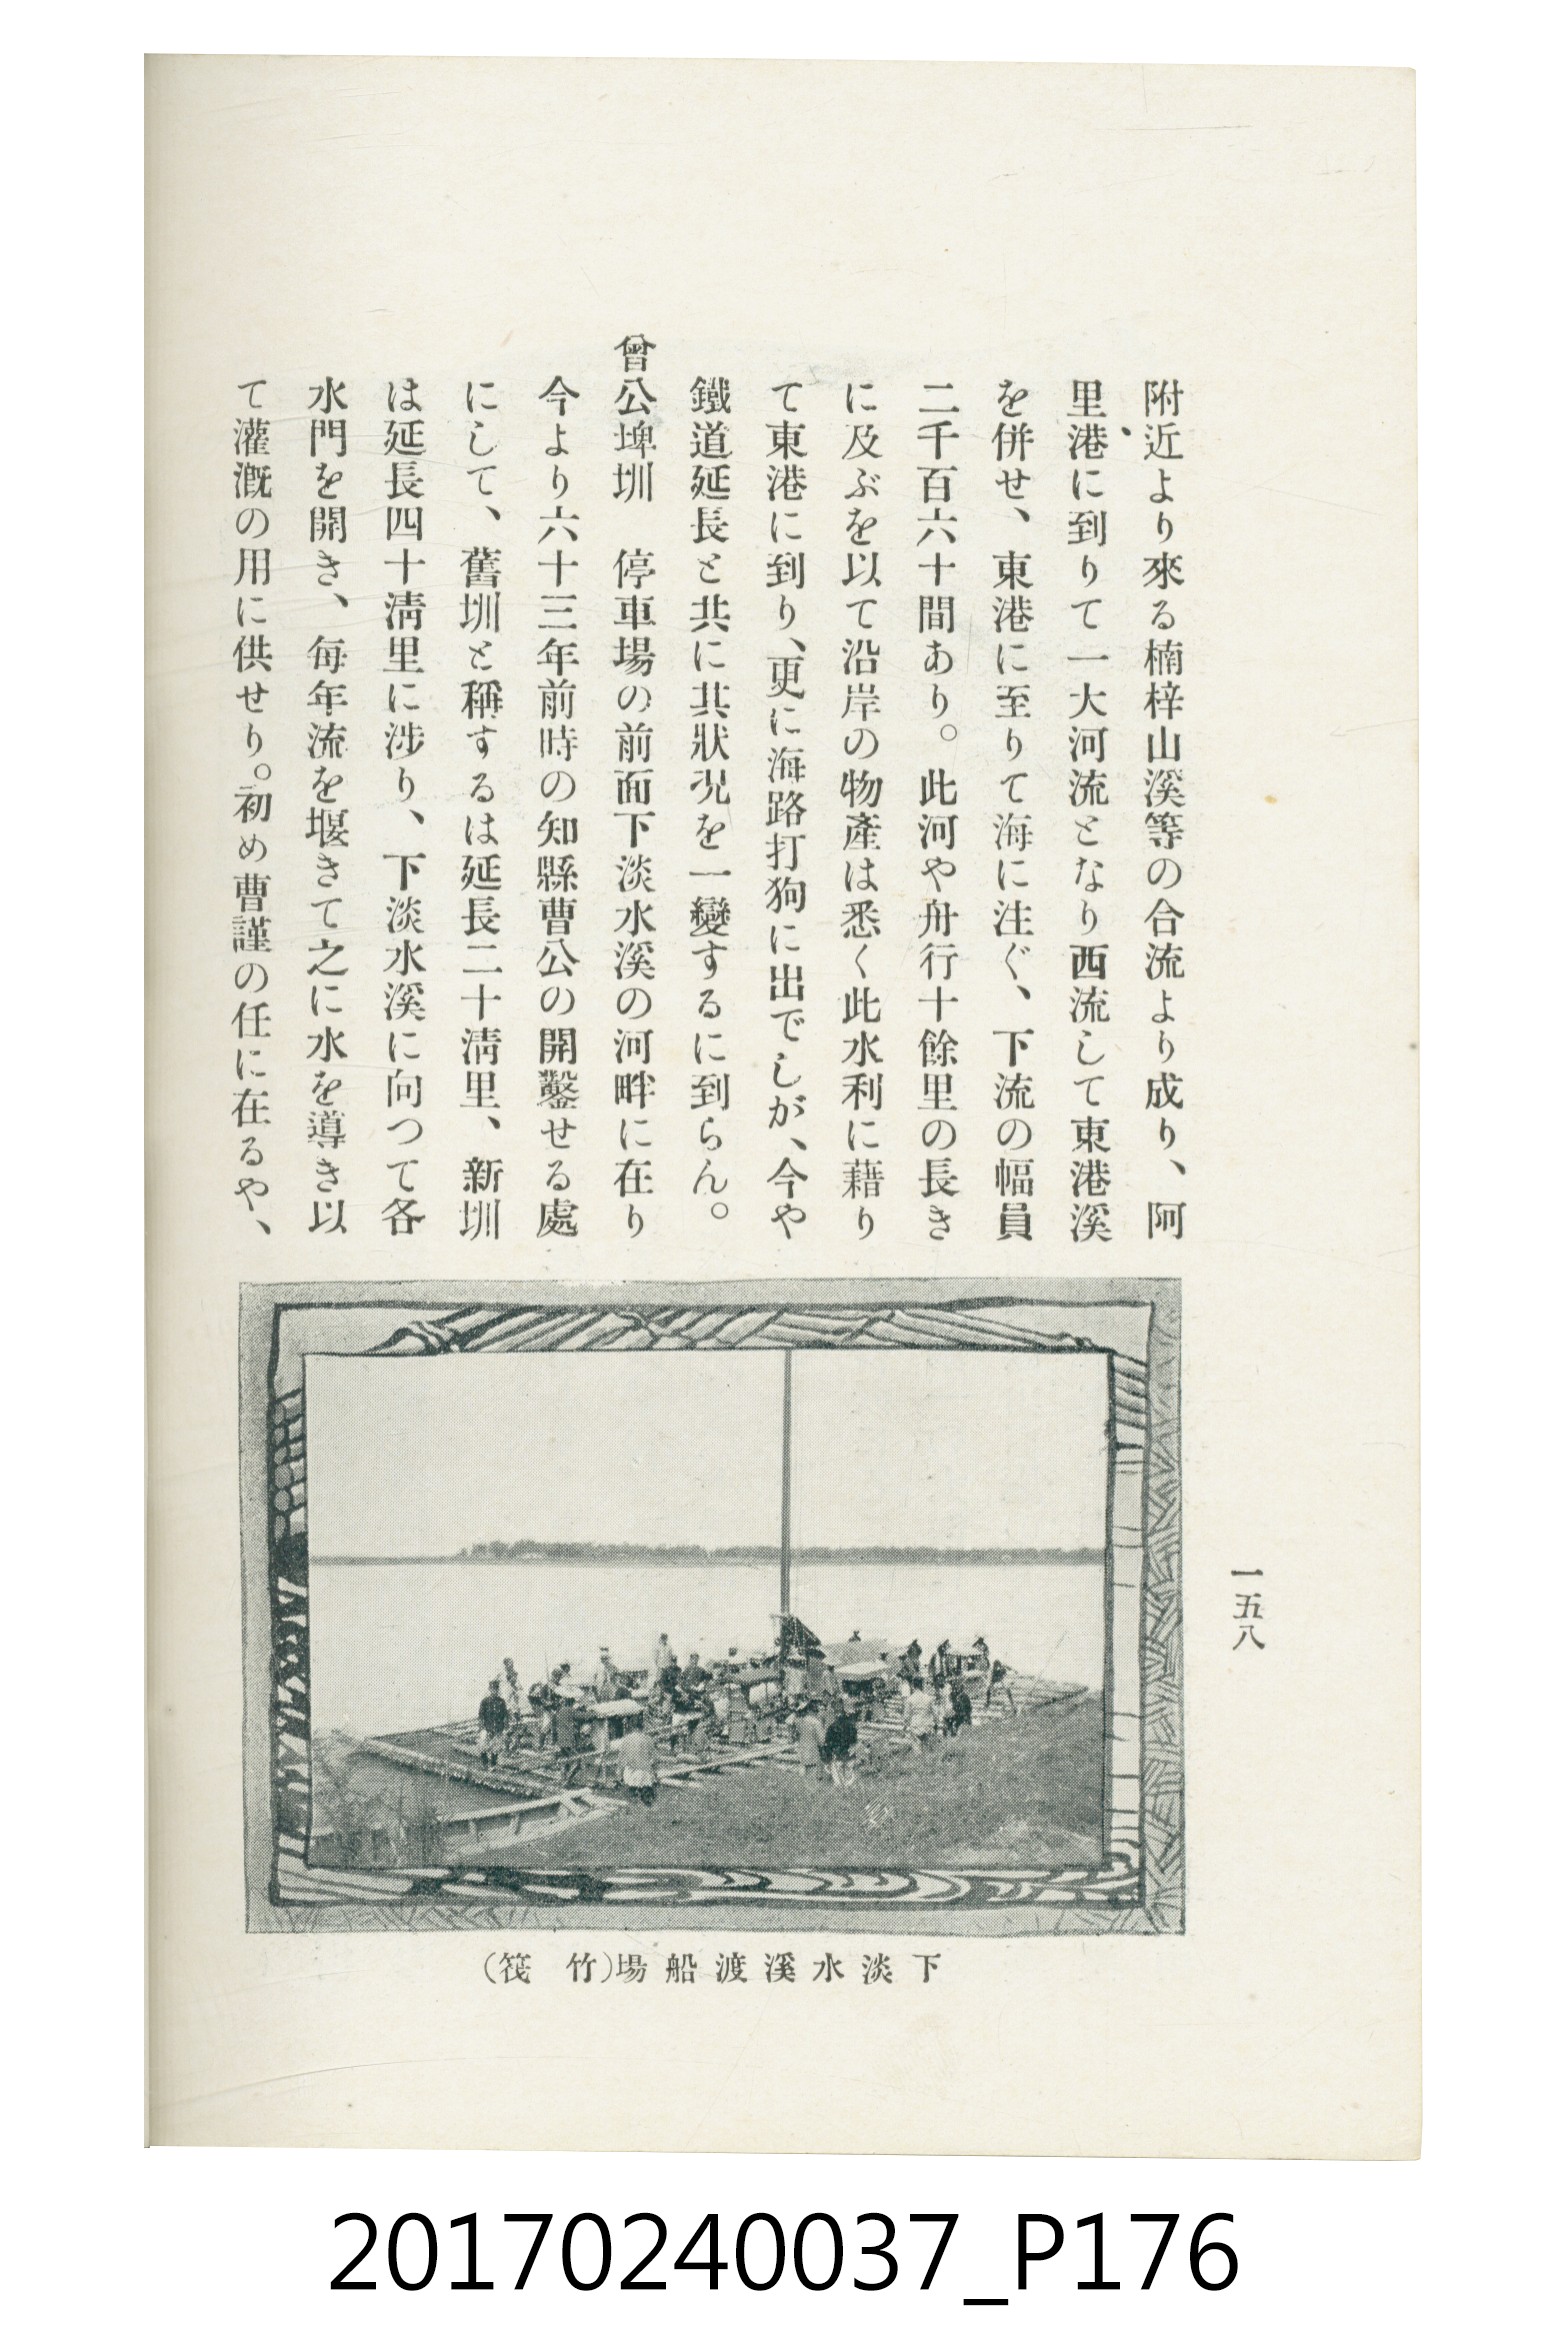 附近より來る楠梓山溪等の合流より成り、阿
里港に到りて一大河流となり西流して東港溪
を併せ、東港に至りて海に注ぐ、下流の幅員
二千百六十間あり。此河や舟行十餘里の長き
に及ぶを以て沿岸の物產は悉く此水利に藉り
て東港に到り、更に海路打狗に出でしが、今や
鐵道延長と共に其狀況を一變するに到らん。
曾公埤圳　停車場の前面下淡水溪の河畔に在り
今より六十三年前時の知縣曹公の開鑿せる處
にして、舊圳と稱するは延長二十淸里、新圳
は延長四十淸里に涉り、下淡水溪に向つて各
水門を開き、每年流を堰きて之に水を導き以
て灌漑の用に供せり。初め曹謹の任に在るや、
一五八
下淡水溪渡船場（竹筏）
20170240037_P176